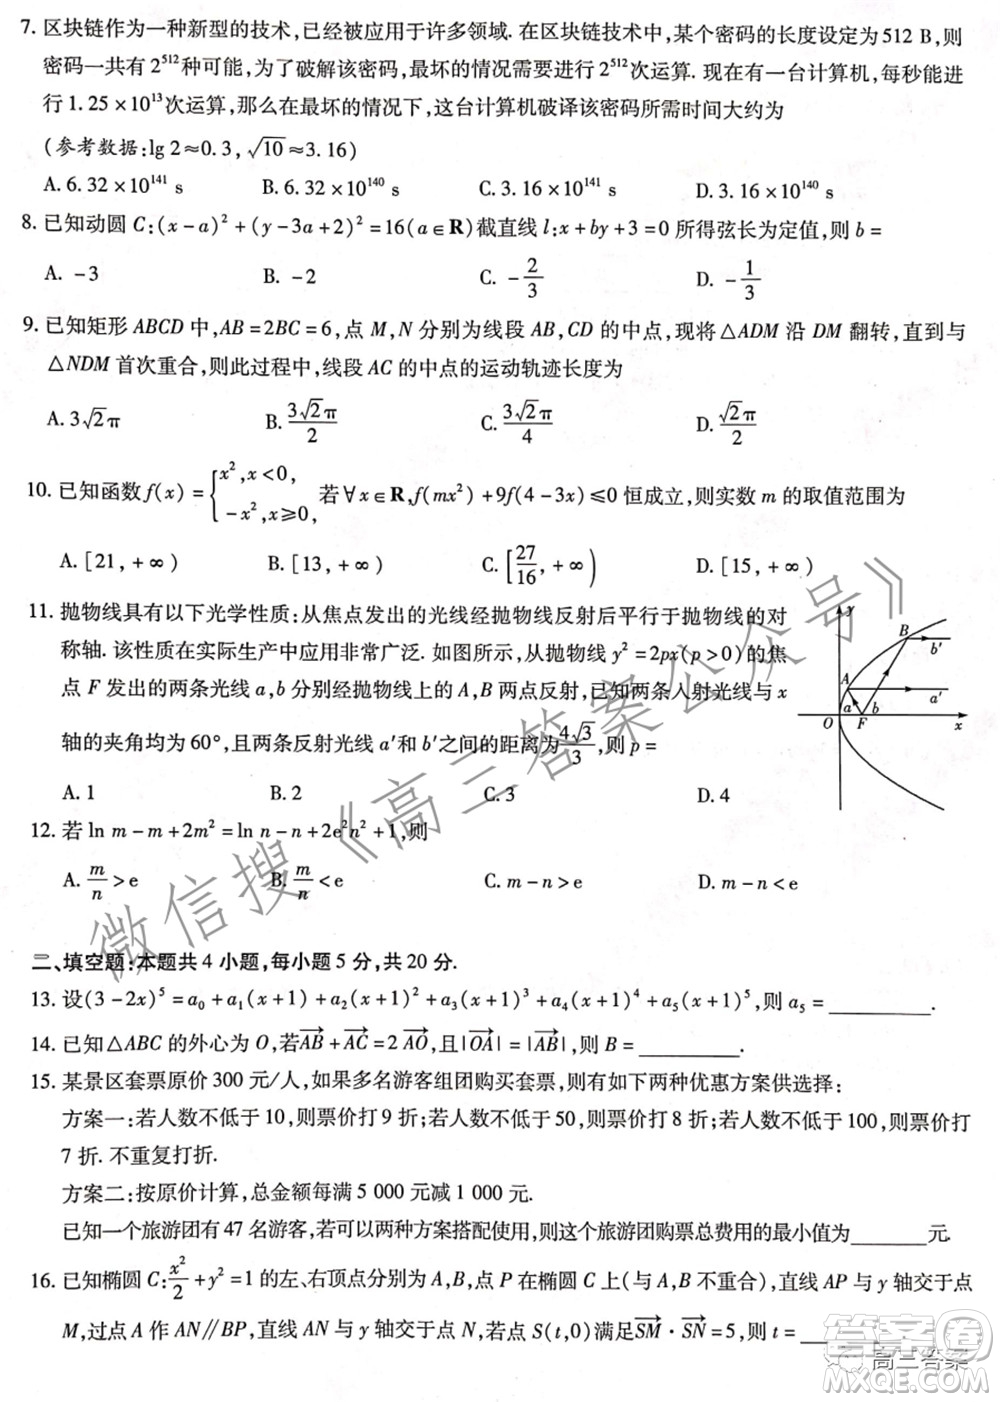 7. 区块链作为一种新型的技术,已经被应用于许多领域. 在区块链技术中,某个密码的长度设定为512 B,则
密码一共有 2^512 种可能,为了破解该密码,最坏的情况需要进行 2^512 次运算. 现在有一台计算机,每秒能进
行 1.25×10^13 次运算,那么在最坏的情况下,这台计算机破译该密码所需时间大约为
(参考数据:lg 2≈0.3,√10≈3.16)
A. 6.32×10^141 s B. 6.32×10^140 s C. 3.16×10^141 s D. 3.16×10^140 s
8. 已知动圆 C:(x-a)²+(y-3a+2)²=16(a∈R)截直线 l:x+by+3=0 所得弦长为定值,则 b=
A. -3 B. -2 C. -2/3 D. -1/3
9. 已知矩形 ABCD 中,AB=2BC=6,点 M,N 分别为线段 AB,CD 的中点,现将△ADM 沿 DM 翻转,直到与
△NDM 首次重合,则此过程中,线段 AC 的中点的运动轨迹长度为
A. 3√2π B. 3√2π/2 C. 3√2π/4 D. √2π/2
10. 已知函数 f(x)={x²,x<0, -x²,x≥0, 若∀x∈R,f(mx²)+9f(4-3x)≤0 恒成立,则实数 m 的取值范围为
A. [21,+∞) B. [13,+∞) C. [27/16,+∞) D. [15,+∞)
11. 抛物线具有以下光学性质:从焦点发出的光线经抛物线反射后平行于抛物线的对
称轴. 该性质在实际生产中应用非常广泛. 如图所示,从抛物线 y²=2px(p>0)的焦
点 F 发出的两条光线 a,b 分别经抛物线上的 A,B 两点反射,已知两条入射光线与 x
轴的夹角均为 60°,且两条反射光线 a′和 b′之间的距离为 4√3/3,则 p=
A. 1 B. 2 C. 3 D. 4
y
B
b′
A
a′
a b
O F x
12. 若 ln m-m+2m²=ln n-n+2e²n²+1,则
A. m/n>e B. m/n<e C. m-n>e D. m-n<e
二、填空题:本题共 4 小题,每小题 5 分,共 20 分.
13. 设(3-2x)⁵=a₀+a₁(x+1)+a₂(x+1)²+a₃(x+1)³+a₄(x+1)⁴+a₅(x+1)⁵,则 a₅=________.
14. 已知△ABC 的外心为 O,若 →AB+→AC=2→AO,且|→OA|=|→AB|,则 B=________.
15. 某景区套票原价 300 元/人,如果多名游客组团购买套票,则有如下两种优惠方案供选择:
方案一:若人数不低于 10,则票价打 9 折;若人数不低于 50,则票价打 8 折;若人数不低于 100,则票价打
7 折. 不重复打折.
方案二:按原价计算,总金额每满 5 000 元减 1 000 元.
已知一个旅游团有 47 名游客,若可以两种方案搭配使用,则这个旅游团购票总费用的最小值为________元.
16. 已知椭圆 C:x²/2+y²=1 的左、右顶点分别为 A,B,点 P 在椭圆 C 上(与 A,B 不重合),直线 AP 与 y 轴交于点
M,过点 A 作 AN∥BP,直线 AN 与 y 轴交于点 N,若点 S(t,0)满足 →SM·→SN=5,则 t=________.
微信搜《高三答案公众号》
答案圈
高二答案
MXQE.COM